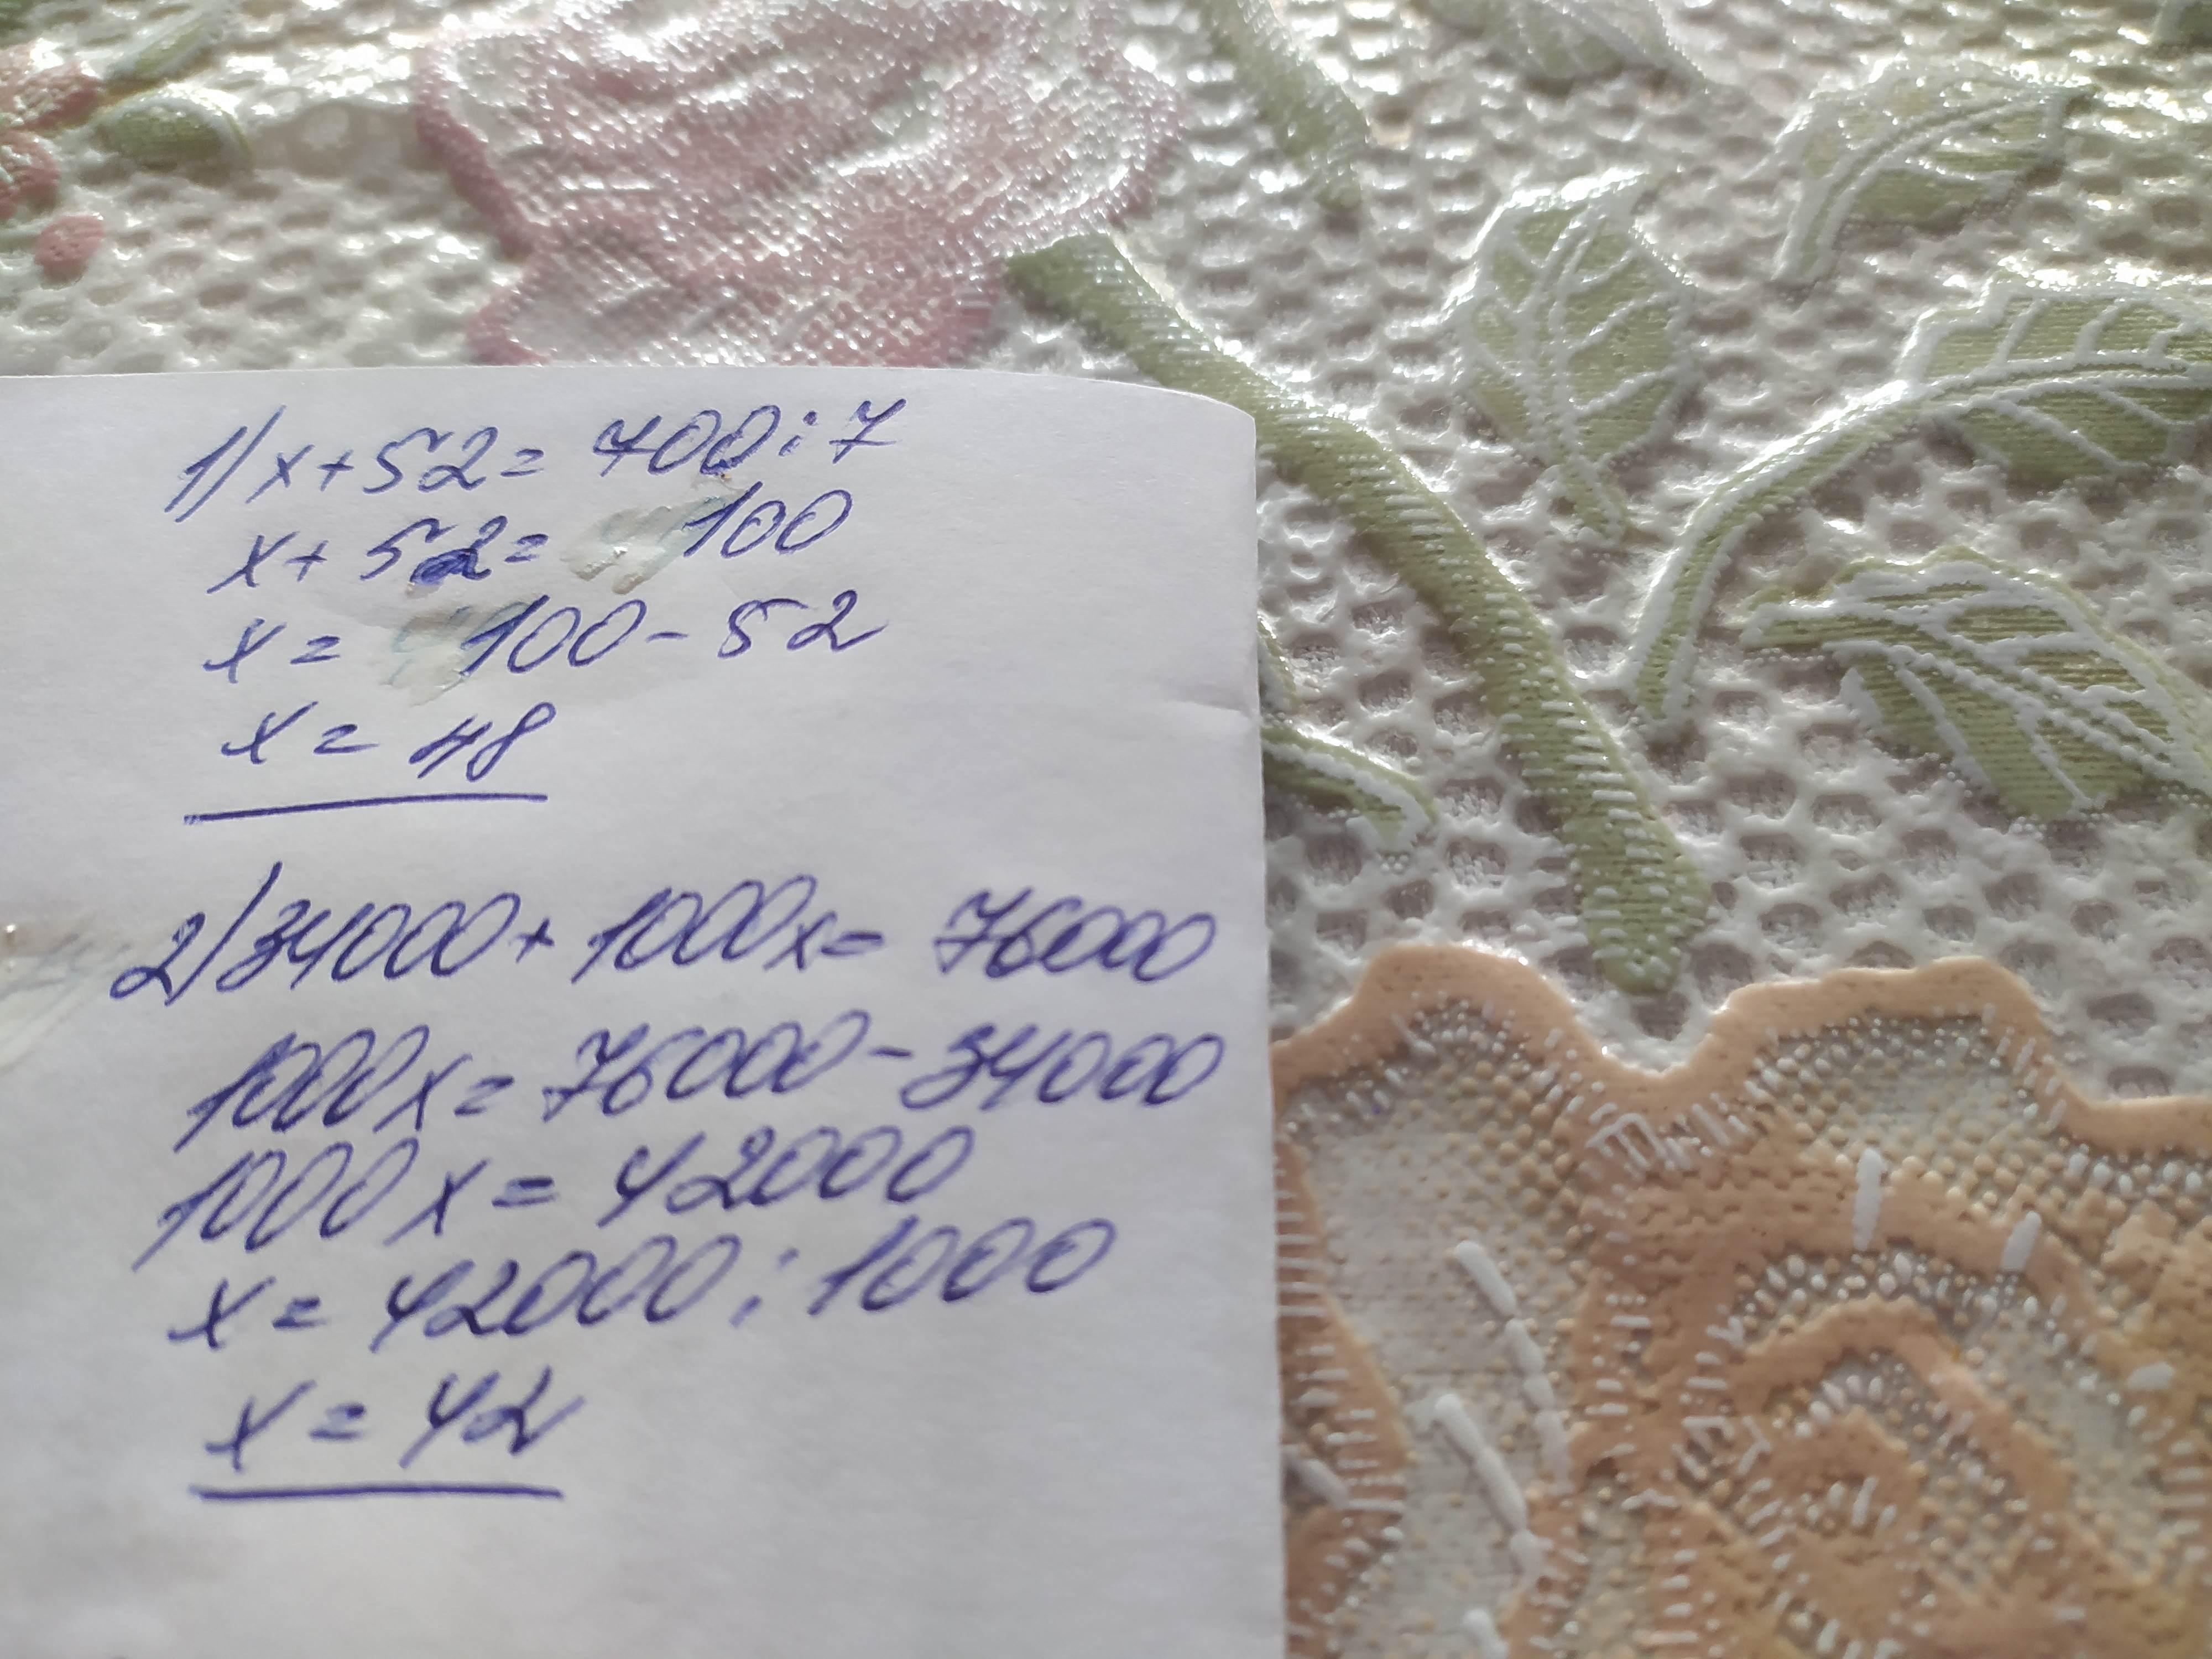 1) x+52=700:7
x+52=100
x=100-52
x=48
2) 34000+1000x=76000
1000x=76000-34000
1000x=42000
x=42000:1000
x=42